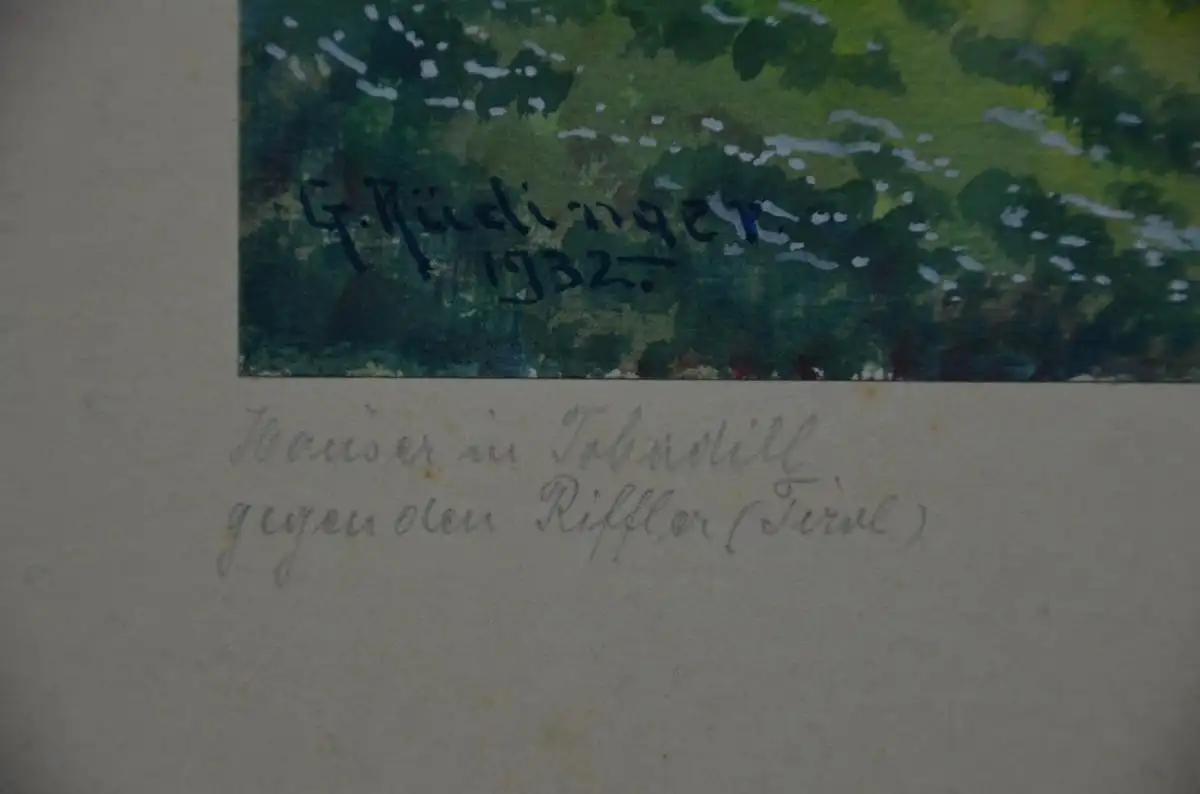 G. Rüdinger.
1932.
Häuser in Tobadill
gegen den Riffler (Tirol)